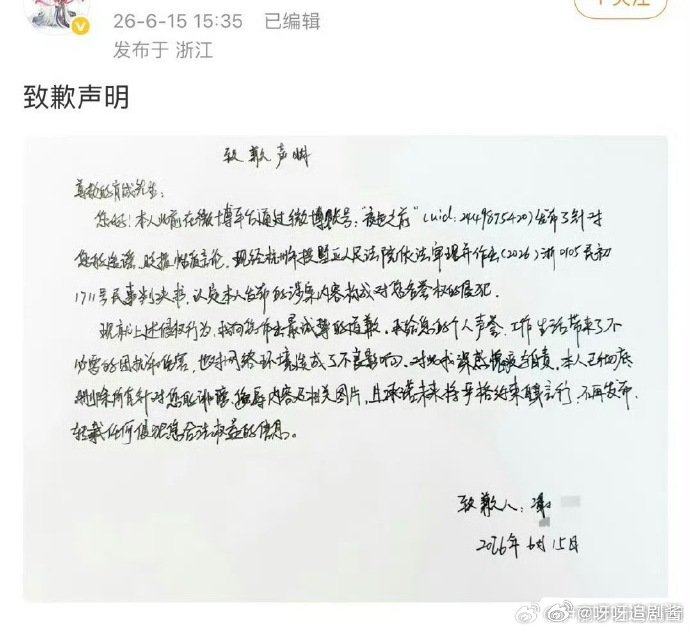 26-6-15 15:35 已编辑
发布于 浙江
致歉声明
致歉声明
尊敬的肖战先生：
您好！本人此前在微博平台通过微博账号："夜 之前"（uid:2449875420）发布了针对
您的造谣、 言论。现经杭州市拱墅区人民法院依法审理并作出（2026）浙0105民初
1711号民事判决书，认定本人发布的涉案内容构成对您名誉权的侵犯。
现就上述侵权行为，我向您作出最诚挚的道歉，我给您的个人声誉、工作生活带来了不
必要的困扰和伤害，也对网络环境造成了不良影响，对此我深感愧疚与自责。本人已彻底
删除所有针对您的诽谤、侮辱内容及相关图片，且承诺未来将严格约束自我言行，不再发布、
转载任何侵犯您合法权益的信息。
致歉人：
2026年6月15日
@呀呀追剧酱